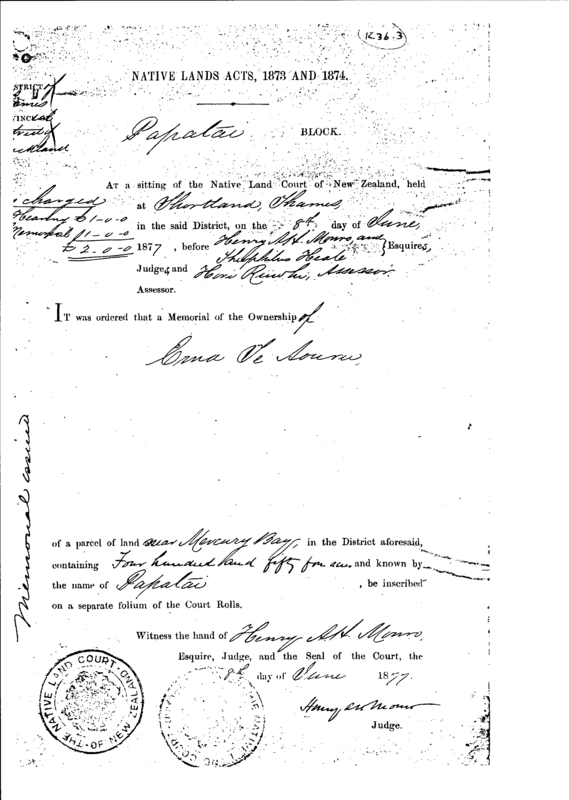 K36.3
NATIVE LANDS ACTS, 1873 AND 1874.
Papatai BLOCK.
AT a sitting of the Native Land Court of New Zealand, held
at Shortland, Thames,
in the said District, on the 8th day of June,
1877, before Henry A H. Monro, and
Theophilus Heale } Esquires,
Judges, and Hori Assessor.
Assessor.
charged
Hearing £1-0-0
Memorial £1-0-0
£2.0-0
IT was ordered that a Memorial of the Ownership of
Te
Memorial
of a parcel of land near Mercury Bay, in the District aforesaid,
containing Four hundred and fifty four acres and known by
the name of Papatai , be inscribed
on a separate folium of the Court Rolls.
Witness the hand of Henry A H. Monro,
Esquire, Judge, and the Seal of the Court, the
8th day of June 1877.
Judge.
THE NATIVE LAND COURT · OF NEW ZEALAND